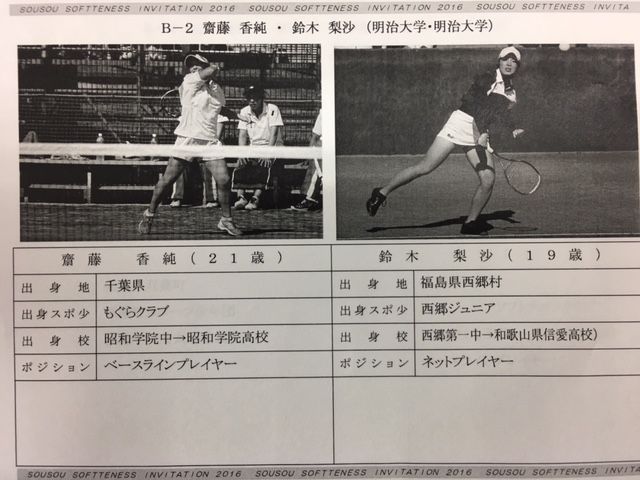 SOUSOU SOFTTENESS INVITATION 2016 SOUSOU SOFTTENESS INVITATION 2016 SOUSOU SOFTTENESS INVITA
B－2 齋藤 香純 ・ 鈴木 梨沙 (明治大学・明治大学)
齋藤 香純(21歳) 鈴木 梨沙(19歳)
出身地 千葉県 出身地 福島県西郷村
出身スポ少 もぐらクラブ 出身スポ少 西郷ジュニア
出身校 昭和学院中→昭和学院高校 出身校 西郷第一中→和歌山県信愛高校)
ポジション ベースラインプレイヤー ポジション ネットプレイヤー
SOUSOU SOFTTENESS INVITATION 2016 SOUSOU SOFTTENESS INVITATION 2016 SOUSOU SOFTTENESS INVITA